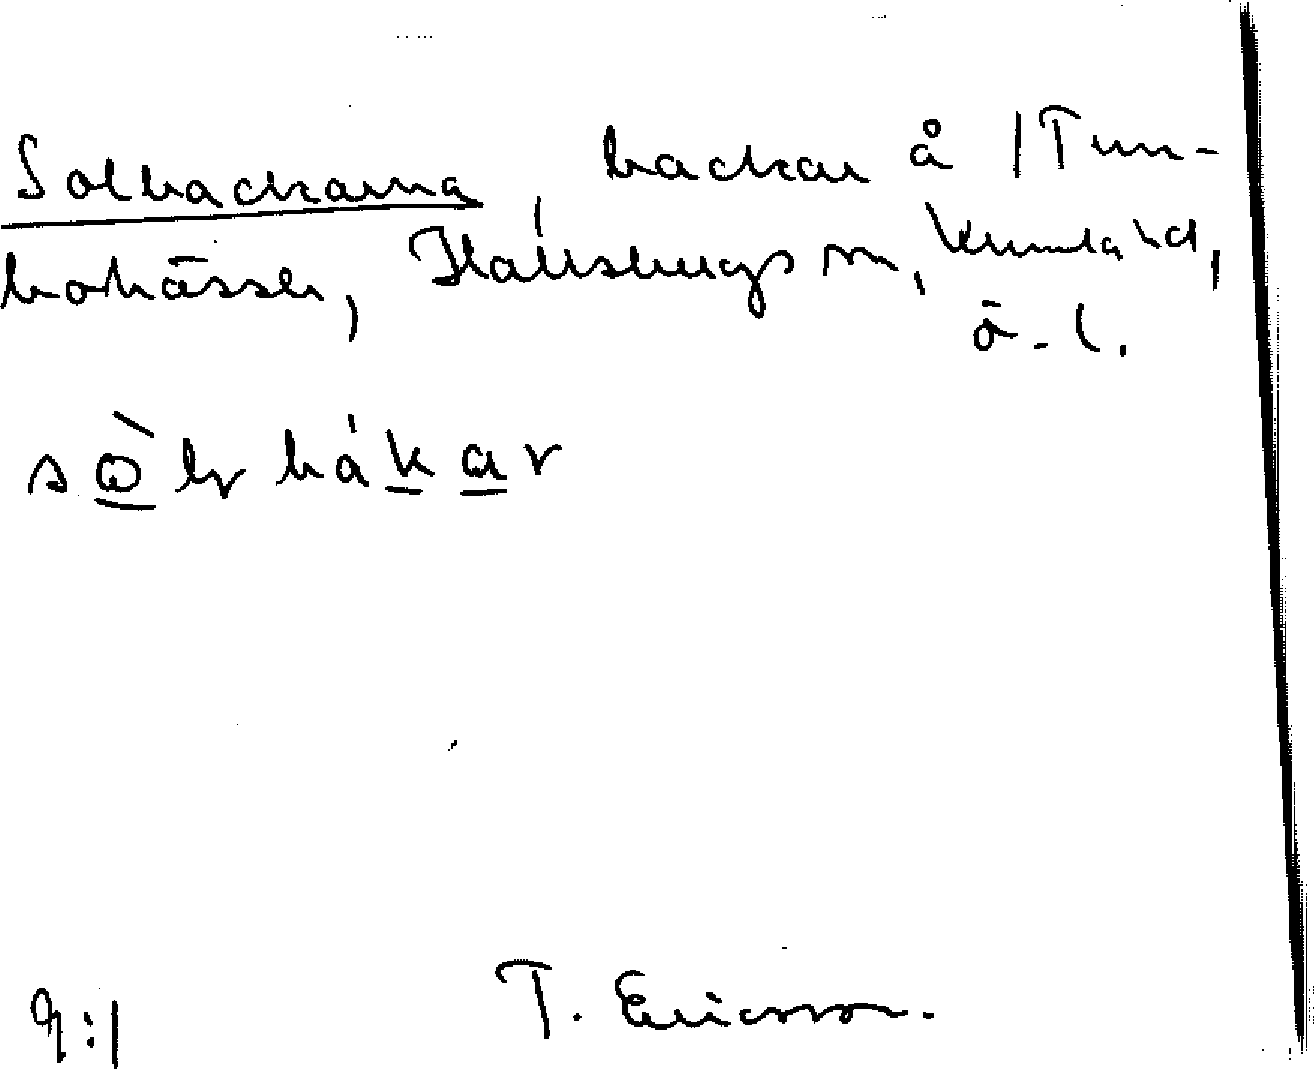 Solbackarna, backar å /Tun-
bohässle, Hallsbergs sn, Kumla hd,
ö-l.
sò̱lbák̲a̲r
9:1
T. Ericsson.